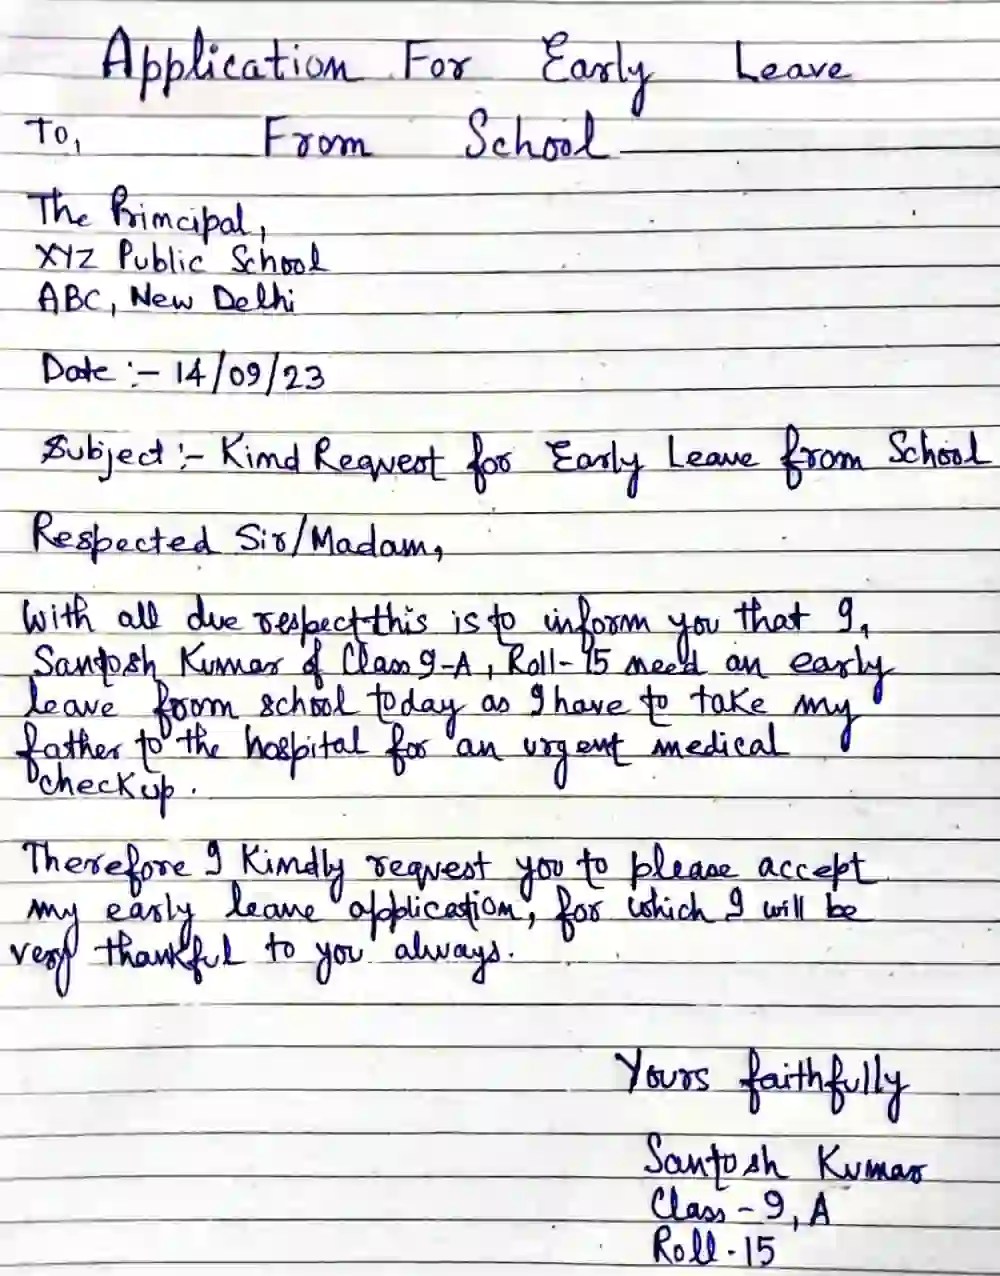 Application For Early Leave
To, From School
The Principal,
XYZ Public School
ABC, New Delhi
Date :- 14/09/23
Subject :- Kind Request for Early Leave from School
Respected Sir/Madam,
With all due respect this is to inform you that I,
Santosh Kumar of Class 9-A, Roll-15 need an early
leave from school today as I have to take my
father to the hospital for an urgent medical
checkup.
Therefore I Kindly request you to please accept
my early leave application, for which I will be
very thankful to you always.
Yours faithfully
Santosh Kumar
Class - 9, A
Roll - 15